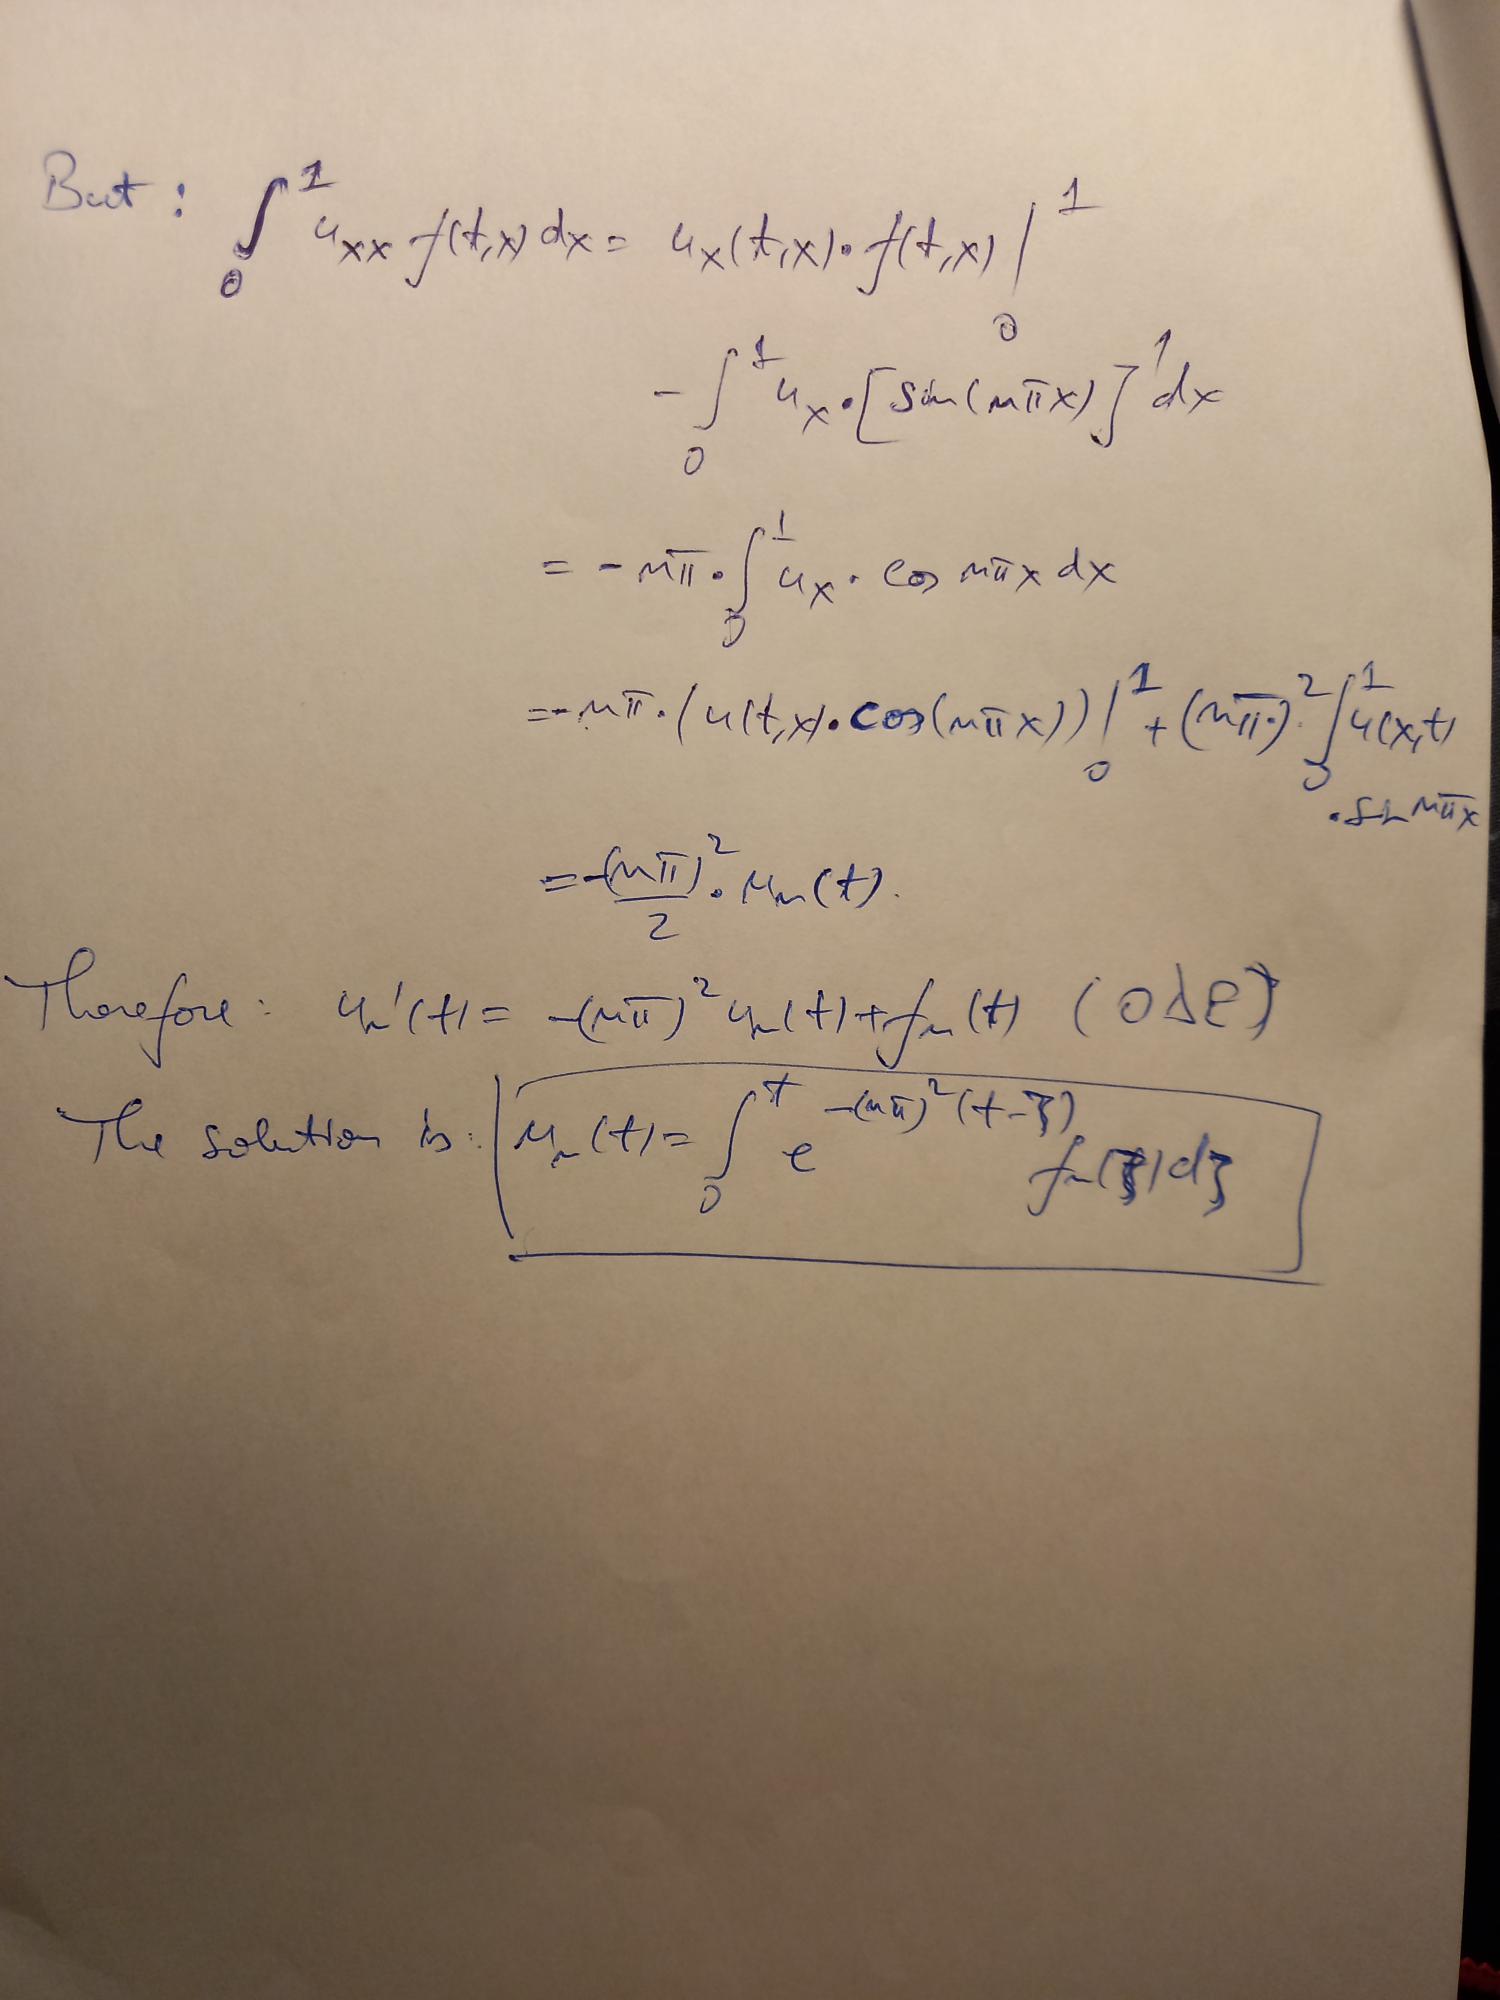 But: ∫₀¹ uₓₓ f(t,x) dx = uₓ(t,x)·f(t,x) |₀¹
- ∫₀¹ uₓ·[sin(nπx)]' dx
= -nπ·∫₀¹ uₓ·cos nπx dx
= -nπ·(u(t,x)·cos(nπx))|₀¹ + (nπ·)² ∫₀¹ u(x,t)
·sin nπx
= -(nπ)²/2 · uₙ(t).
Therefore: uₙ'(t) = -(nπ)² uₙ(t) + fₙ(t) (ODE)
The solution is: uₙ(t) = ∫₀ᵗ e^{-(nπ)²(t-ξ)} fₙ(ξ) dξ